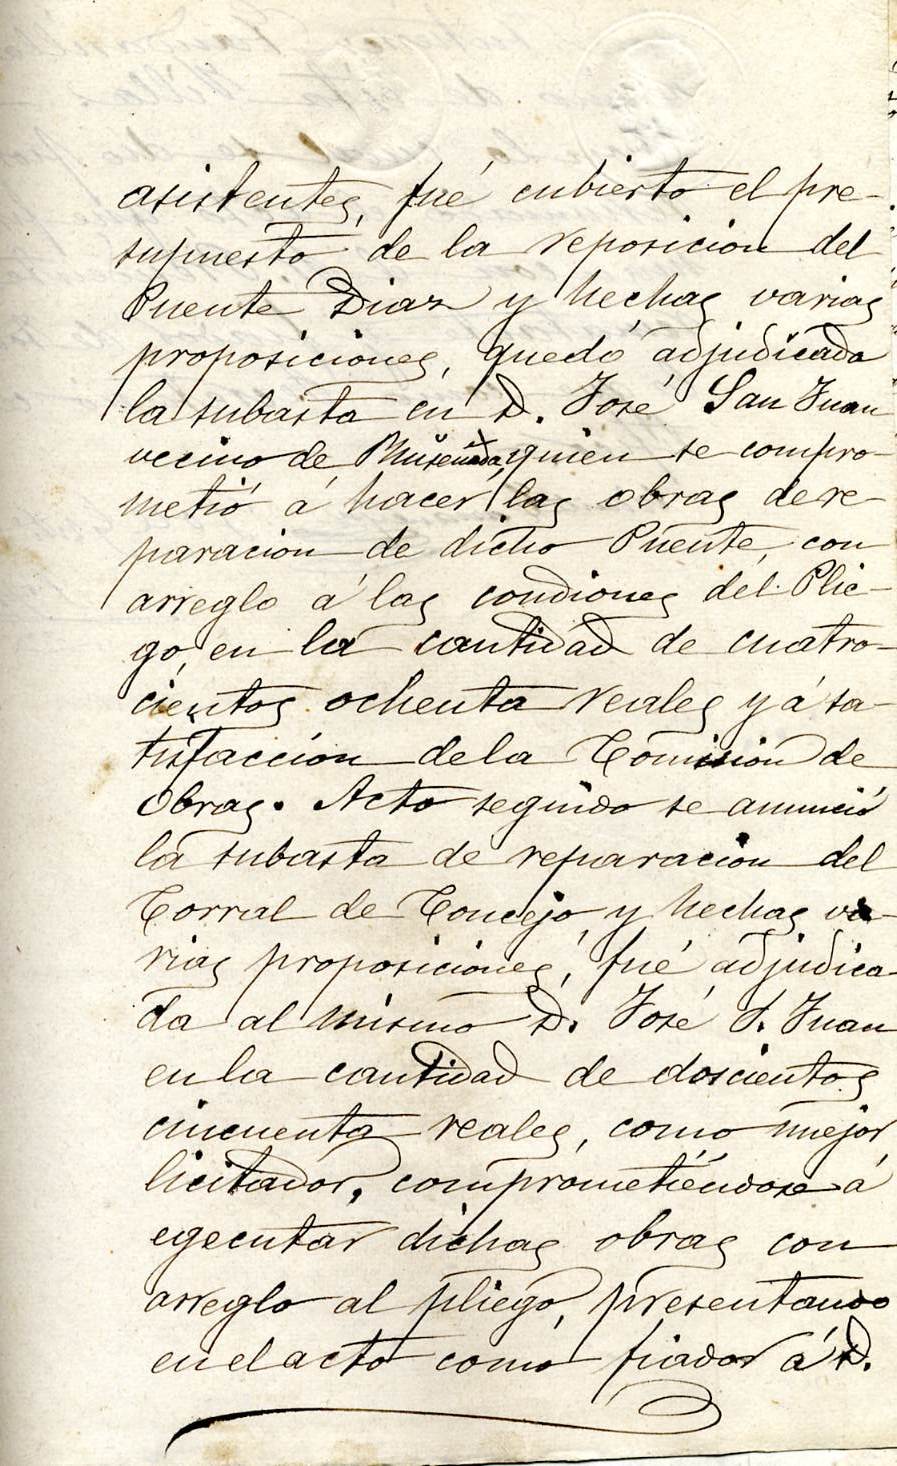 asistentes, fué cubierto el pre-
supuesto de la reposicion del
Puente Diaz y hechas varias
proposiciones, quedó adjudicada
la subasta en D. José San Juan
vecino de quien se compro-
metió á hacer las obras de re-
paracion de dicho Puente, con
arreglo á las condiones del Plie-
go, en la cantidad de cuatro-
cientos ochenta reales y á sa-
tisfaccion de la Comision de
Obras. Acto seguido se anunció
la subasta de reparacion del
Corral de Concejo, y hechas va-
rias proposiciones, fué adjudica-
da al mismo D. José S. Juan
en la cantidad de doscientos
cincuenta reales, como mejor
licitador, comprometiéndose á
egecutar dichas obras con
arreglo al pliego, presentando
en el acto como fiador á D.